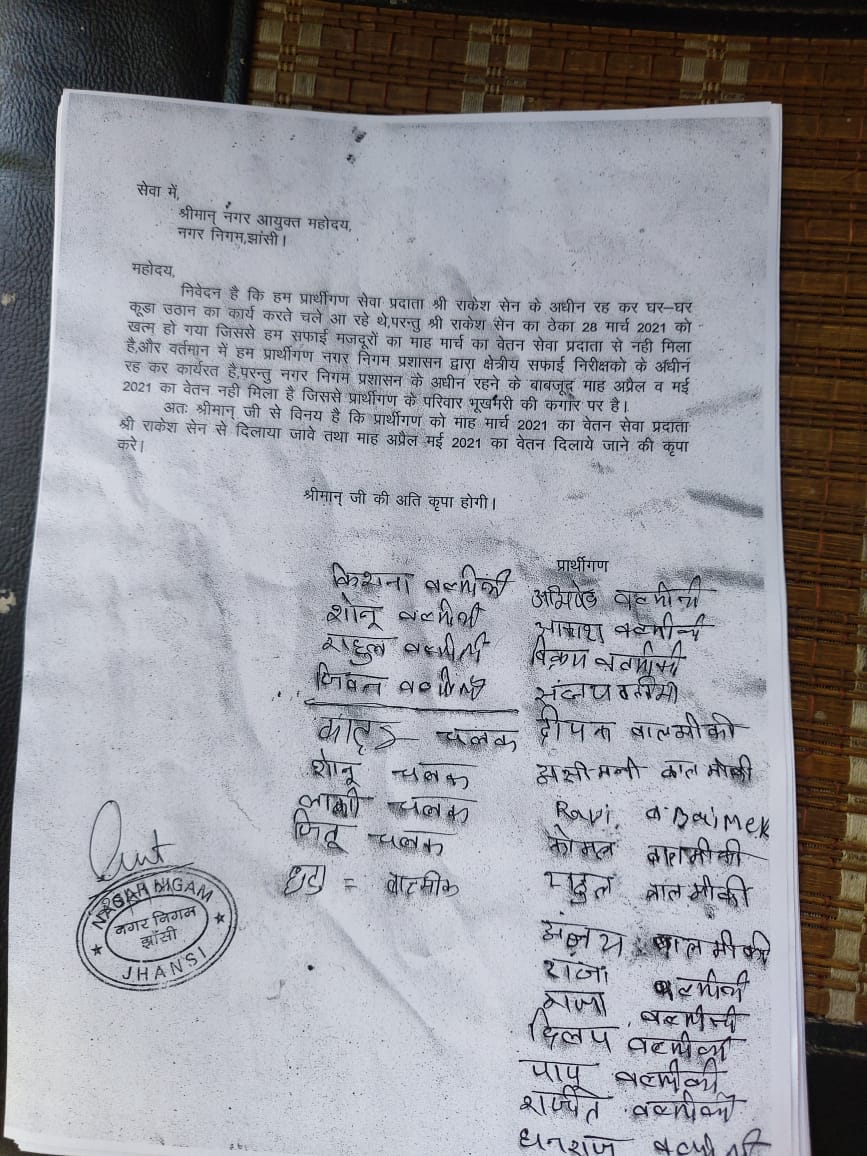 सेवा में,
श्रीमान् नगर आयुक्त महोदय,
नगर निगम,झांसी।
महोदय,
निवेदन है कि हम प्रार्थीगण सेवा प्रदाता श्री राकेश सेन के अधीन रह कर घर–घर
कूडा उठान का कार्य करते चले आ रहे थे,परन्तु श्री राकेश सेन का ठेका 28 मार्च 2021 को
खत्म हो गया जिससे हम सफाई मजदूरों का माह मार्च का वेतन सेवा प्रदाता से नही मिला
है,और वर्तमान में हम प्रार्थीगण नगर निगम प्रशासन द्वारा क्षेत्रीय सफाई निरीक्षको के अधीन
रह कर कार्यरत है,परन्तु नगर निगम प्रशासन के अधीन रहने के बाबजूद माह अप्रैल व मई
2021 का वेतन नही मिला है जिससे प्रार्थीगण के परिवार भूखमरी की कगार पर है।
अतः श्रीमान् जी से विनय है कि प्रार्थीगण को माह मार्च 2021 का वेतन सेवा प्रदाता
श्री राकेश सेन से दिलाया जावे तथा माह अप्रैल मई 2021 का वेतन दिलाये जाने की कृपा
करे।
श्रीमान् जी की अति कृपा होगी।
प्रार्थीगण
किशना वल्मीकी
शोनू वल्मीकी
राहुल वल्मीकी
वल्मीकी
चलक
शोनू चलक
लाकी चलक
जितू चलक
= वाल्मीक
वल्मीकी
आकाश वल्मीकी
विक्रम वल्मीकी
दीपक बालमीकी
बालमीकी
Ravi
कोमल बालमीकी
राहुल बालमीकी
संजय बालमीकी
राजा वल्मीकी
राजा वल्मीकी
दिलप वल्मीकी
पापू वल्मीकी
वल्मीकी
धनराज
NAGAR NIGAM
नगर निगम
झाँसी
JHANSI